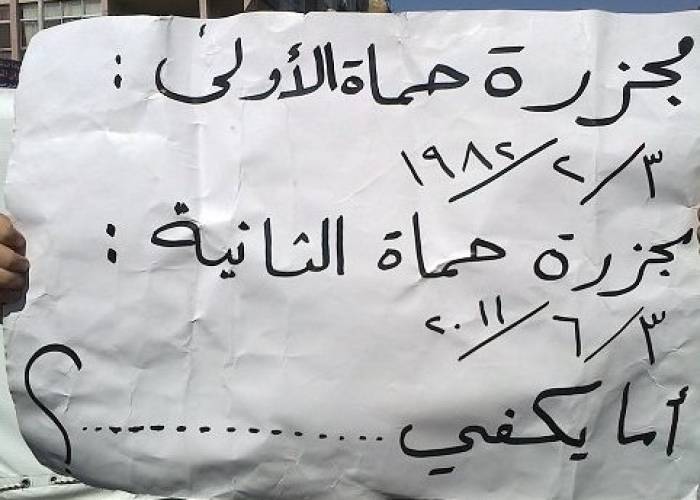 مجزرة حماة الأولى :
٣/٢/١٩٨٢
مجزرة حماة الثانية :
٣/٦/٢٠١١
أما يكفي ..................؟